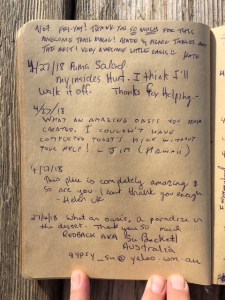 THANK YOU SO MUCH FOR THIS
AWESOME TRAIL MAGIC!
THE BEST! VERY AWESOME LITTLE OASIS!!
4/27/18 Puma Salad
My insides Hurt. I think I'll
walk it off. Thanks for Helping -
4/27/18
WHAT AN AMAZING OASIS YOU HAVE
CREATED. I COULDN'T HAVE
COMPLETED TODAY'S HIKE WITHOUT
THIS HELP! - JIM
4/27/18
This place is completely amazing &
so are you! Can't thank you enough
- Helen UK
27/4/18 What an oasis, a paradise in
the desert. Thank you SO much
REDBACK AKA Su Beckett
AUSTRALIA
gypsy_su@yahoo.com.au